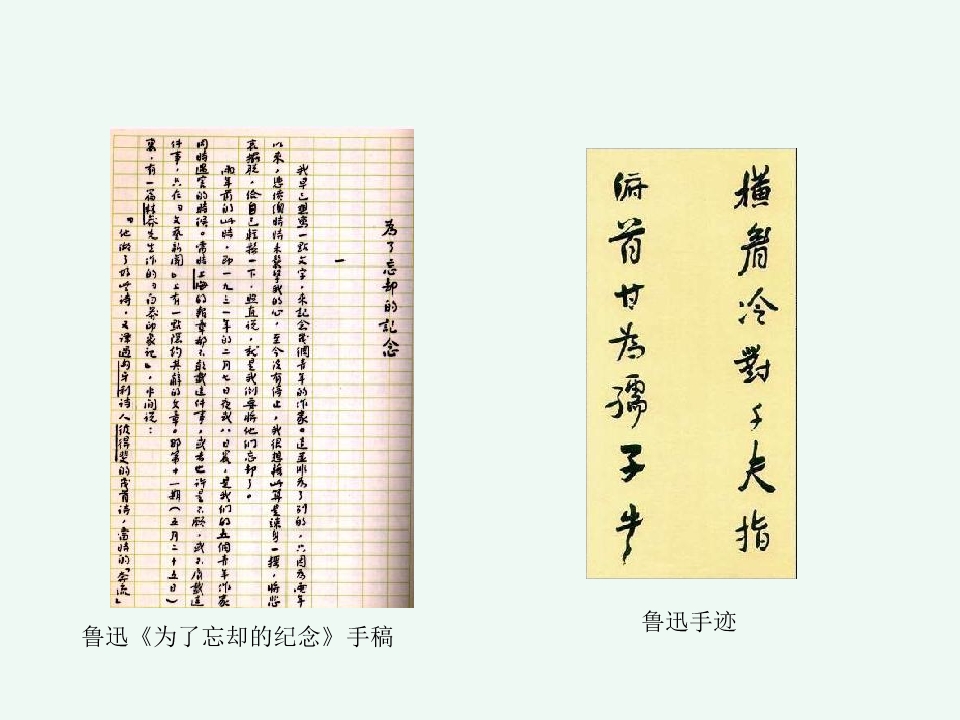 為了忘却的記念
一
我早已想寫一點文字,來記念幾個青年的作家。這並非為了别的,只因為兩年
以來,悲憤總時時來襲擊我的心,至今没有停止,我很想借此算是竦身一摇,將悲
哀擺脱,给自己輕鬆一下,照直说,就是我倒要將他們忘却了。
兩年前的此時,即一九三一年的二月七日夜或八日晨,是我們的五個青年作家
同時遇害的時候。當時上海的報章都不敢載這件事,或者也許是不願,或不屑載這
件事,只在「文藝新聞」上有一點隱約其辭的文章。那第十一期(五月二十五日)
裏,有一篇林莽先生作的「白莽印象記」,中间说:
「他做了好些詩,又譯過匈牙利詩人彼得斐的幾首詩,當時的「奔流」
鲁迅《为了忘却的纪念》手稿
橫眉冷對千夫指
俯首甘為孺子牛
鲁迅手迹